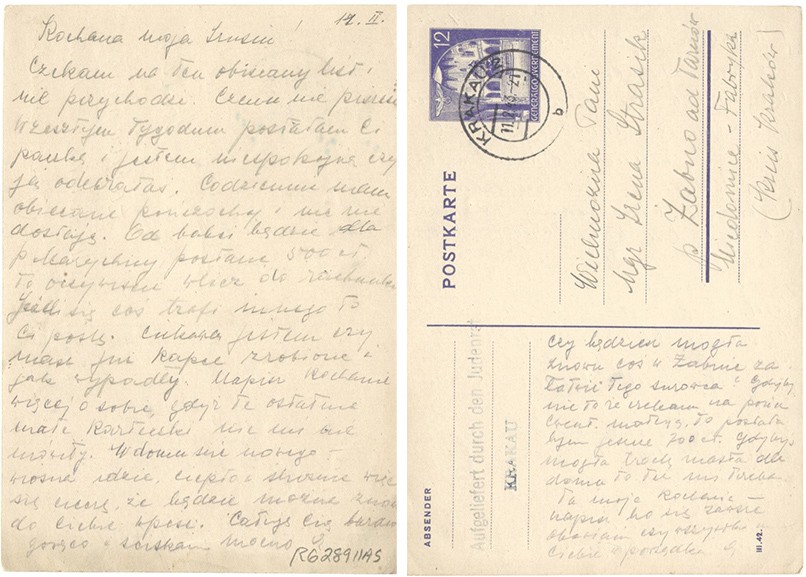 17. II.
Kochana moja Irusiu!
Czekam na ten obiecany list i
nie przychodzi. Czemu nie piszesz
W zeszłym tygodniu posłałam Ci
paczkę i jestem niespokojna czy
ją odebrałaś. Codziennie mam
obiecane pończochy i nie
dostaję. Od będzie dla
500 zł
to oczywiście wlicz do rachunku
Jeśli się coś trafi innego to
Ci poślę. Ciekawa jestem czy
masz już kapie zrobione i
jak wypadły. Napisz kochanie
więcej o sobie, gdyż te ostatnie
małe karteczki nic mi nie
mówiły. W domu nic nowego -
wiosna idzie, ciepło
się cieszę, że będzie można znów
do Ciebie Całuję Cię bardzo
gorąco i ściskam mocno
RG28911AS
12
GENERALGOUVERNEMENT
KRAKAU 2
b
POSTKARTE
Wielmożna Pani
Mgr Irena Strasik
p Żabno ad Tarnów
Niedomice - Fabryka
(Kreis Krakau)
ABSENDER
Aufgeliefert durch den Judenrat
KRAKAU
Czy będziesz mogła
znowu coś w Żabnie
tego surowca? Gdyby
nie to że czekam na
to posłała
bym jeszcze 200 zł. Gdybyś
mogła trochę masła dla
domu to
Ta moja kochanie -
napisz bo się zawsze
obawiam czy wszystko
Ciebie w porządku
III.42.